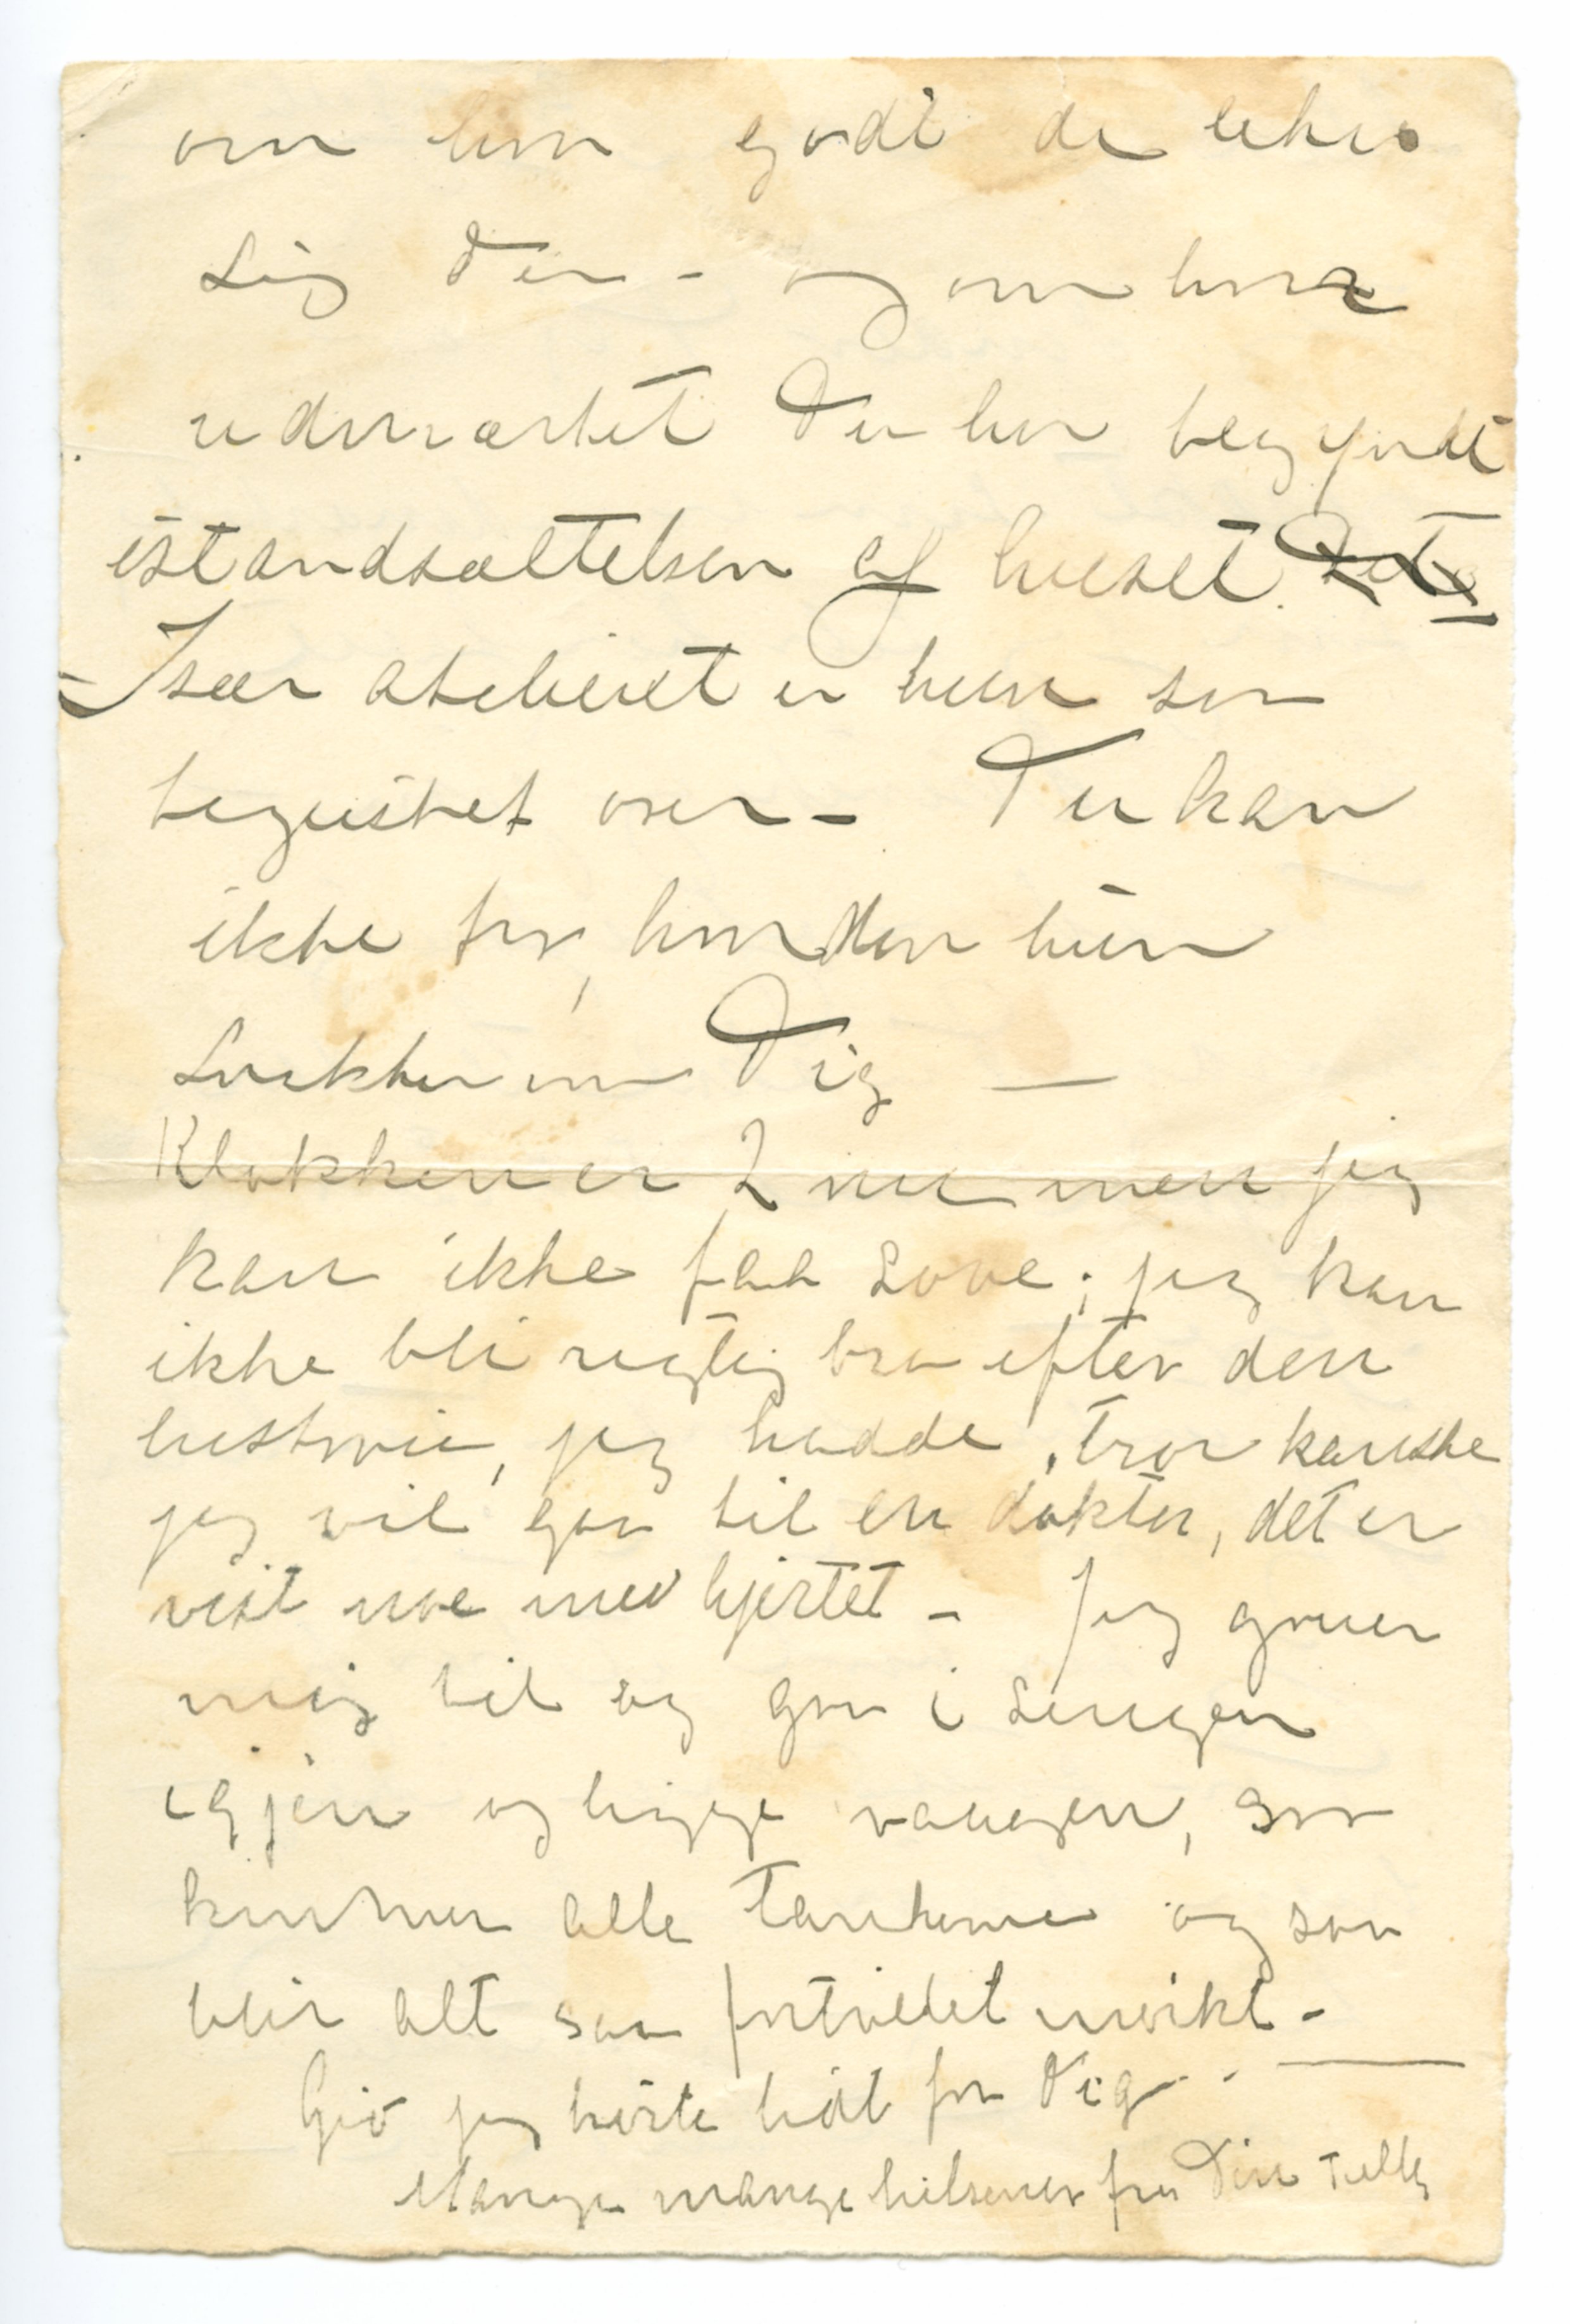 om hvor godt de liker
sig der - og om hvor
udmærket Du har begyndt
istandsættelsen af huset.
Især atelieret er hun saa
begeistret over - Du kan
ikke tro, hvordan hun
snakker om Dig —
Klokken er 2 nu men jeg
kan ikke faa sove; jeg kan
ikke bli rigtig bra efter den
jeg hadde, tror kanske
jeg vil gaa til en doktor, det er
vist noe med hjertet - Jeg gruer
mig til og gaa i sengen
igjen og ligge vaagen, saa
kommer alle tankerne og saa
blir alt saa fortvilet mørkt -
Giv jeg hørte lidt fra Dig - - —
Mange mange hilsener fra Din Tulla